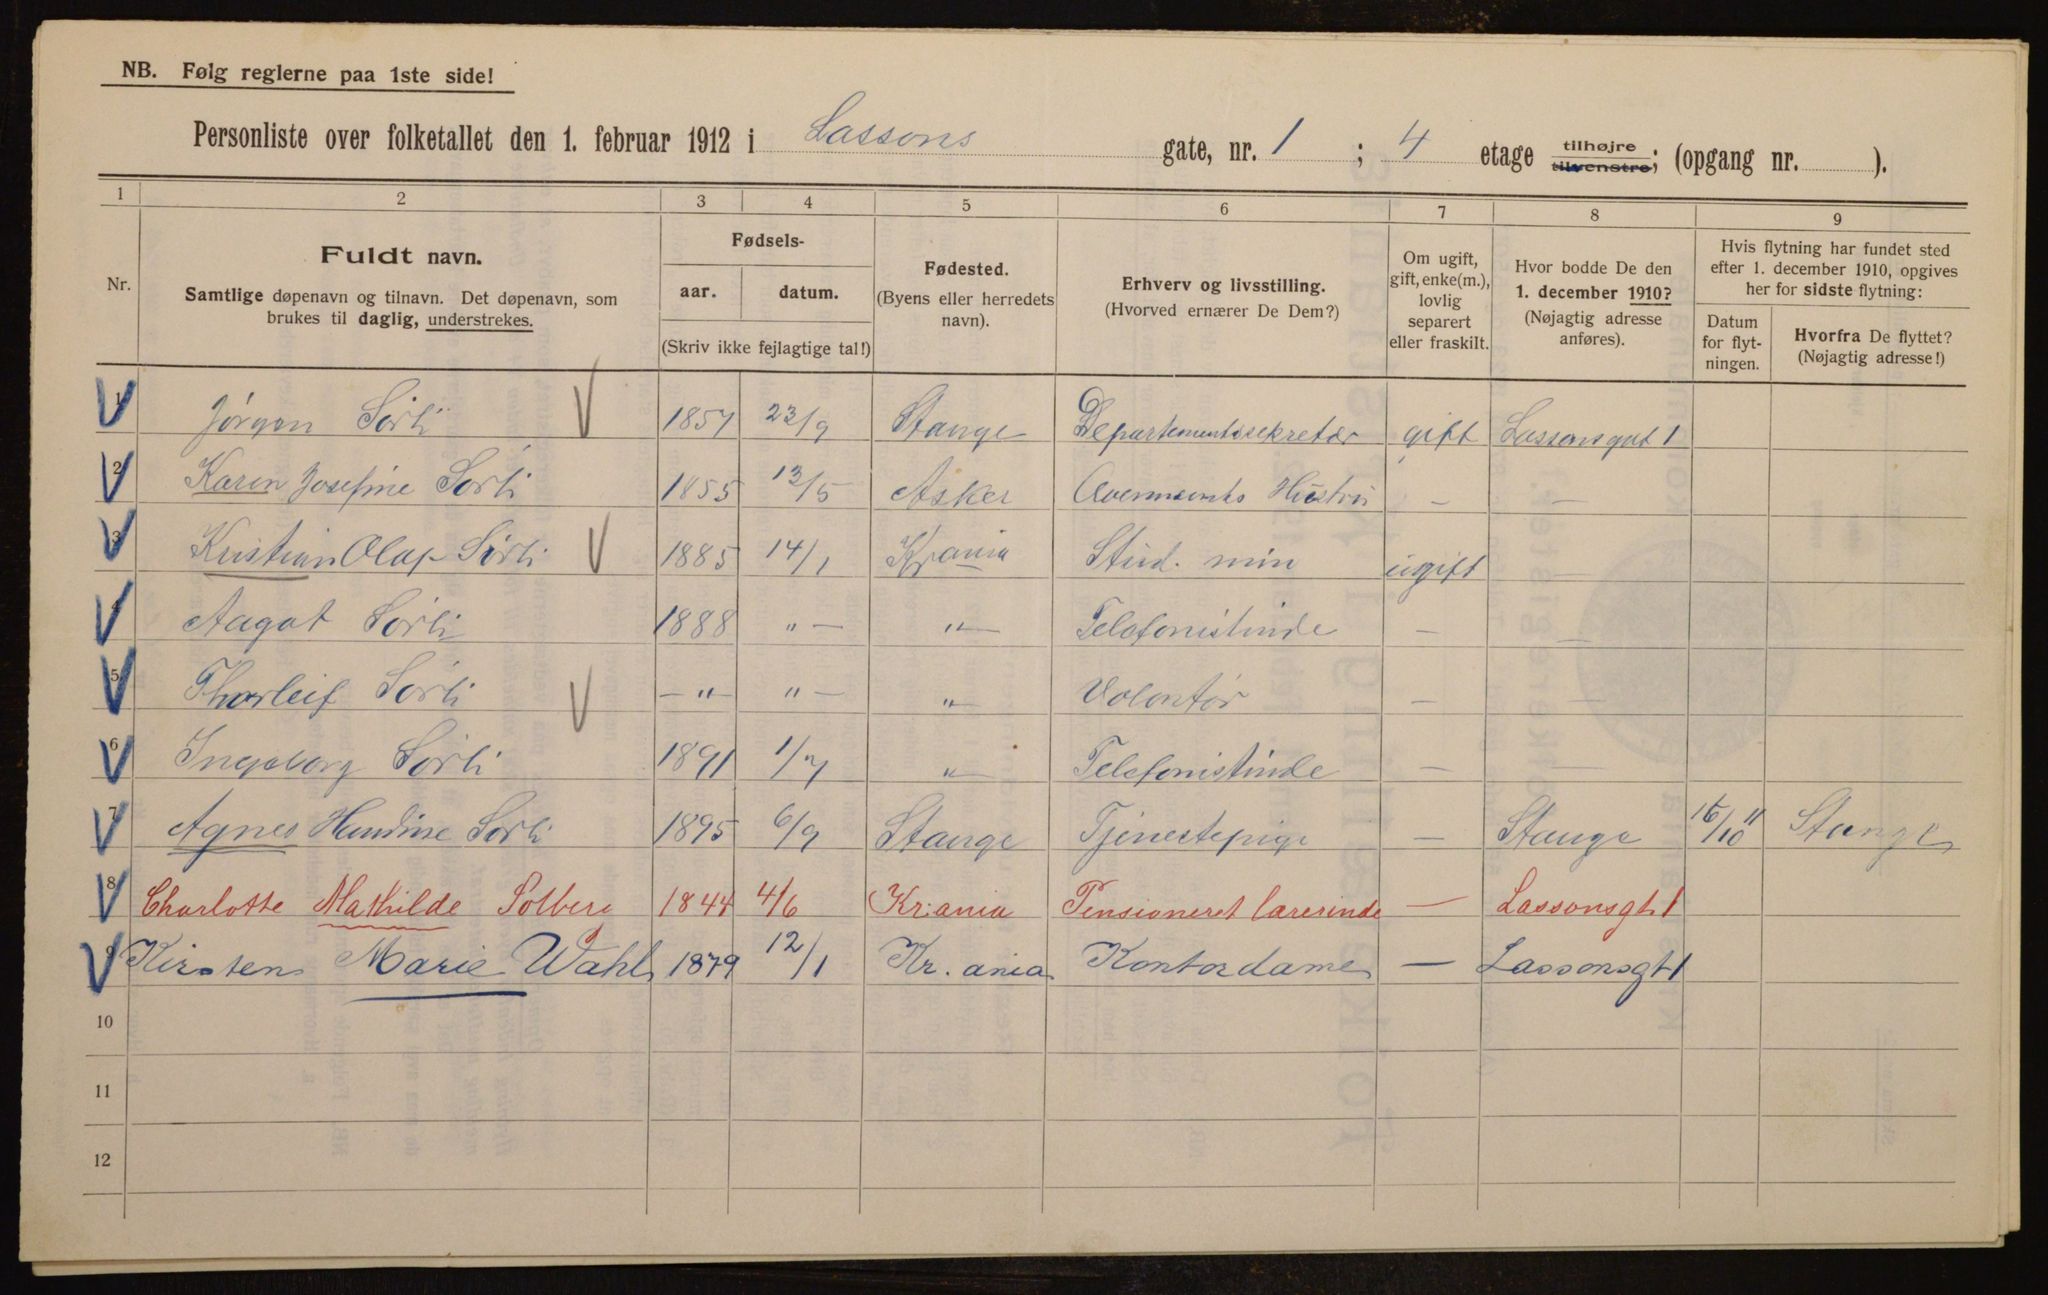 NB. Følg reglerne paa 1ste side!
Personliste over folketallet den 1. februar 1912 i Lassons gate, nr. 1 ; 4 etage tilhøjre tilvenstre; (opgang nr. ).
1 2 3 4 5 6 7 8 9
Nr.
Fuldt navn.
Samtlige døpenavn og tilnavn. Det døpenavn, som
brukes til daglig, understrekes.
Fødsels-
aar. datum.
(Skriv ikke fejlagtige tal!)
Fødested.
(Byens eller herredets
navn).
Erhverv og livsstilling.
(Hvorved ernærer De Dem?)
Om ugift,
gift, enke(m.),
lovlig
separert
eller fraskilt.
Hvor bodde De den
1. december 1910?
(Nøjagtig adresse
anføres).
Hvis flytning har fundet sted
efter 1. december 1910, opgives
her for sidste flytning:
Datum
for flyt-
ningen.
Hvorfra De flyttet?
(Nøjagtig adresse!)
1 Jørgen Sørli 1857 23/9 Stange Departementssekretær gift Lassonsgat 1
2 Karen Josefine Sørli 1855 13/5 Asker Ovennævnts Hustru — —
3 Kristian Olaf Sørli 1885 14/1 Krania Stud. min ugift —
4 Aagot Sørli 1888 " — " — Telefonistinde — —
5 Thorleif Sørli — " — " — " Volontør — —
6 Ingeborg Sørli 1891 1/7 " Telefonistinde — —
7 Agnes Sørli 1895 6/9 Stange Tjenestepige — Stange 16/10 11 Stange
8 Charlotte Mathilde Solberg 1844 4/6 Kr:ania Pensioneret lærerinde — Lassonsgt 1
9 Kirsten Marie Wahl 1879 12/1 Kr. ania Kontordame — Lassonsgt 1
10
11
12